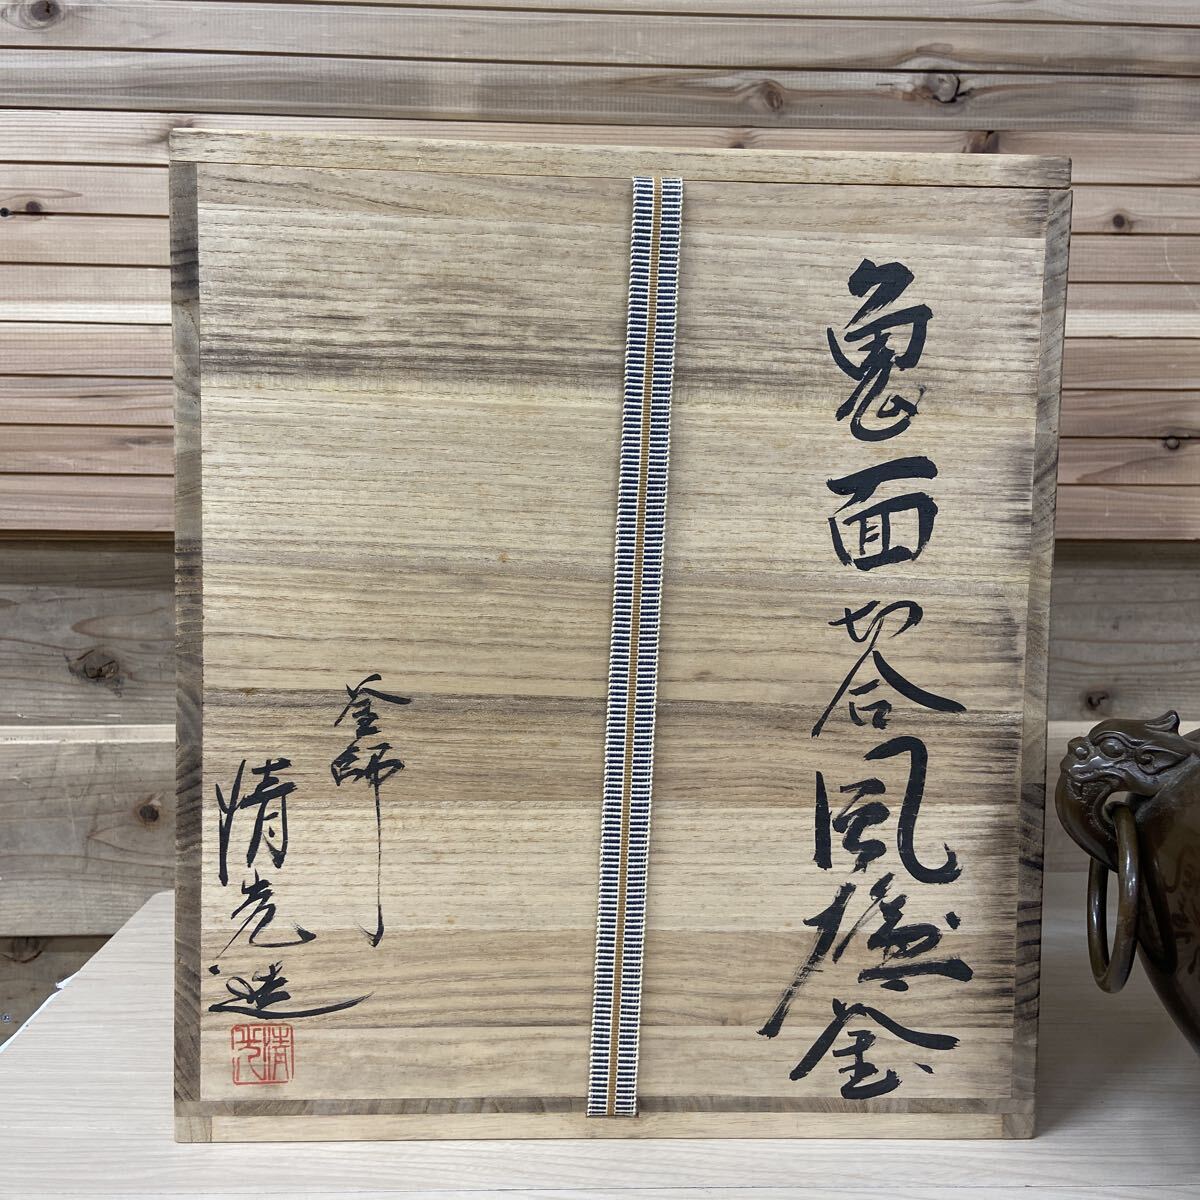 鬼面切合風爐釜
釜師
清光造
清光